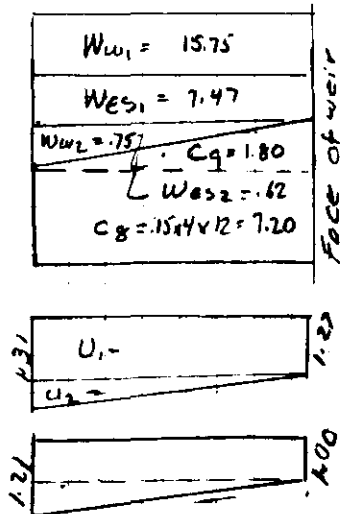 Ww₁ = 15.75
Wes₁ = 7.47
Ww₂ = .75
C9 = 1.80
Wes₂ = .62
C8 = .15x4x12 = 7.20
Face of weir
U₁ -
U₂ -
1.31
1.00